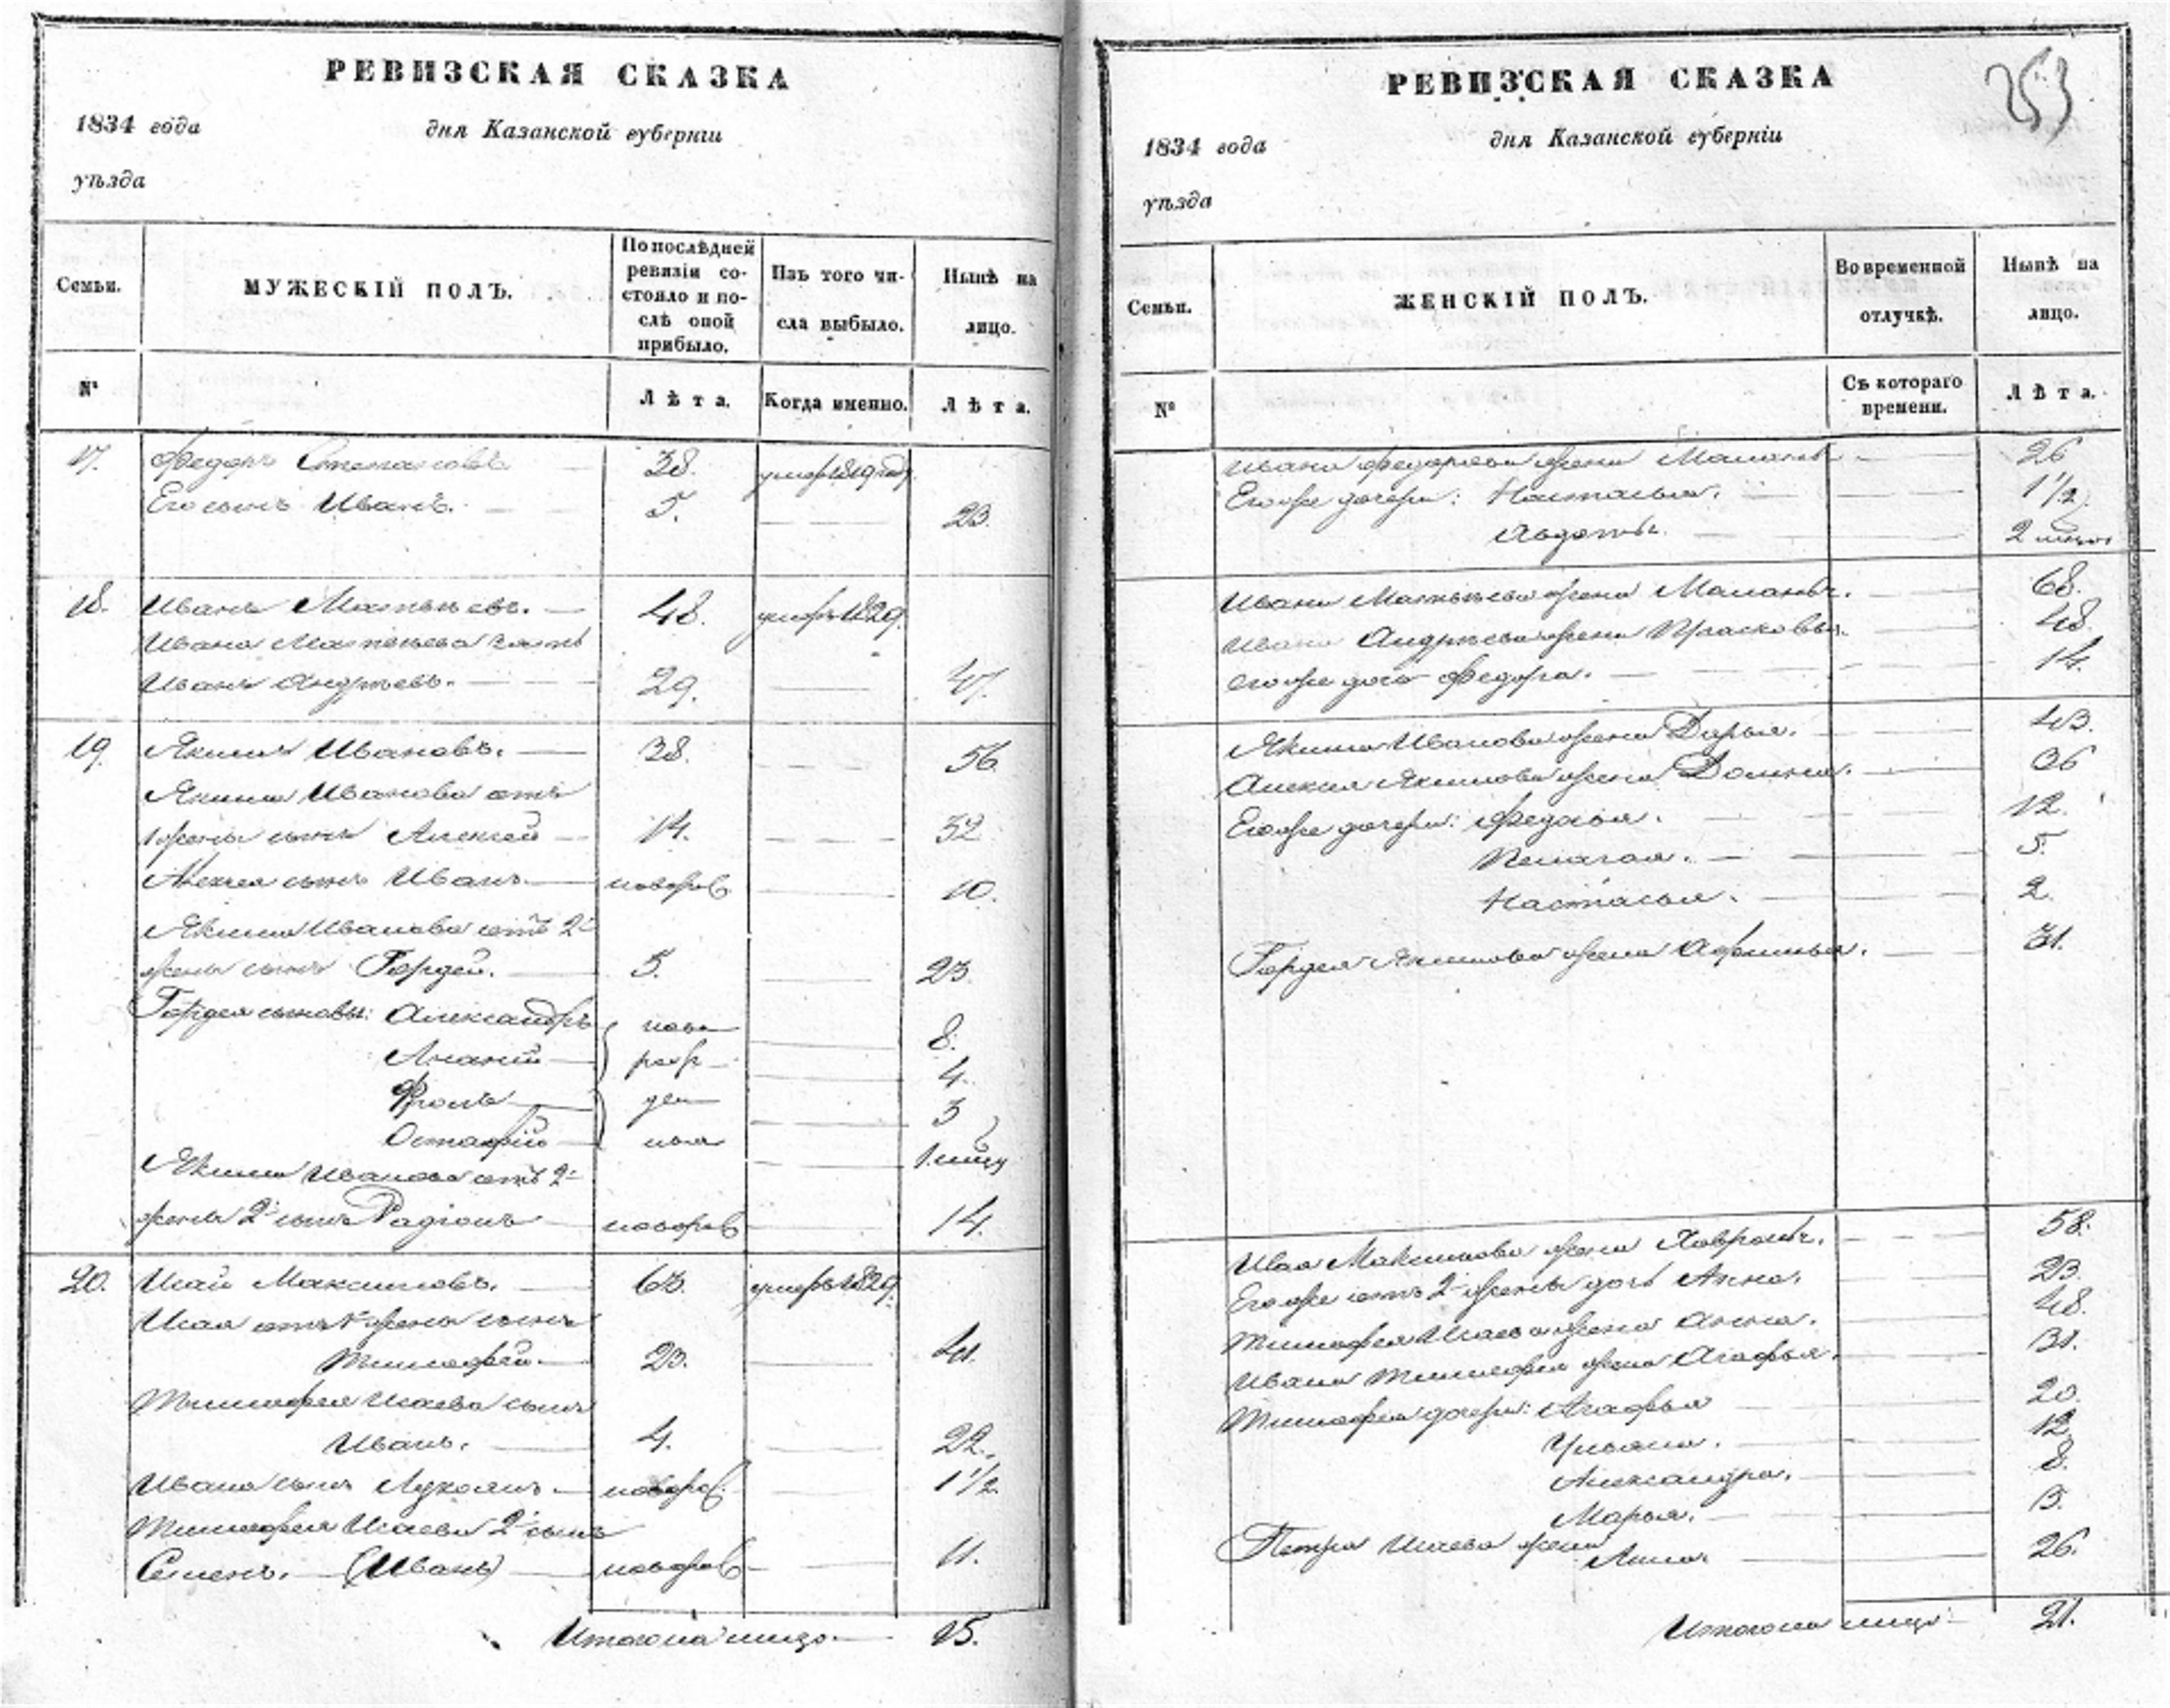 РЕВИЗСКАЯ СКАЗКА
1834 года
дня Казанской губерніи
уѣзда
Семьи.
МУЖЕСКІЙ ПОЛЪ.
По послѣдней ревизіи состояло и послѣ оной прибыло.
Изъ того числа выбыло.
Нынѣ на лицо.
№
Лѣта.
Когда именно.
Лѣта.
17. Федоръ Степановъ 38. умеръ 1819 год
Его сынъ Иванъ. 5. 23.
18. Иванъ Матвѣевъ. 48. умеръ 1829.
Ивана Матвѣева зять
Иванъ Андрѣевъ. 29. 47.
19. Якимъ Ивановъ. 38. 56
Якима Иванова отъ
жены сынъ Алексей 14. 32
Алексея сынъ Иванъ новорож 10.
Якима Иванова отъ 2й
жены сынъ Гордей. 5. 23
Гордея сыновья: Александръ ново 8.
Ананій рож 4.
Фролъ ден 3
Остафій ныя 1 мѣся
Якима Иванова отъ 2й
жены 2й сынъ Радіонъ новорож 14.
20. Исай Максимовъ. 63. умеръ 1829.
Исая отъ 1й жены сынъ
Тимофей. 23. 41.
Тимофея Исаева сынъ
Иванъ. 4. 22.
Ивана сынъ Лукоянъ. новорож. 1 1/2
Тимофея Исаева 2й сынъ
Семенъ. (Иванъ) новорож 11.
Итого на лицо. 15.
РЕВИЗСКАЯ СКАЗКА
253
1834 года
дня Казанской губерніи
уѣзда
Семьи.
ЖЕНСКІЙ ПОЛЪ.
Во временной отлучкѣ.
Нынѣ на лицо.
№
Съ котораго времени.
Лѣта.
Ивана Федорова жена Маланья 26
Его же дочери: Настасья. 1 1/2
Авдотья. 2 мѣся
Ивана Матвѣева жена Маланья. 68.
Ивана Андрѣева жена Прасковья. 48.
Его же дочь Федора. 14.
Якима Иванова жена Дарья. 43.
Алексея Якимова жена Домна. 36
Его же дочери: Федосья. 12.
Пелагея. 5.
Настасья. 2.
Гордея Якимова жена Афимья. 31.
Исая Максимова жена Хавронья. 58.
Его же отъ 2й жены дочь Анна. 23.
Тимофея Исаева жена Анна. 48.
Ивана Тимофея жена Агафья. 31.
Тимофея дочери: Агафья 20.
Ульяна. 12
Александра. 8.
Марья. 3.
Петра Исаева жена
Анна. 26.
Итого на лицо 21.